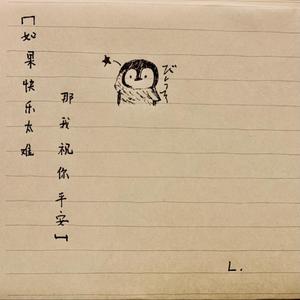 「如果快乐太难
那我祝你平安」
L.